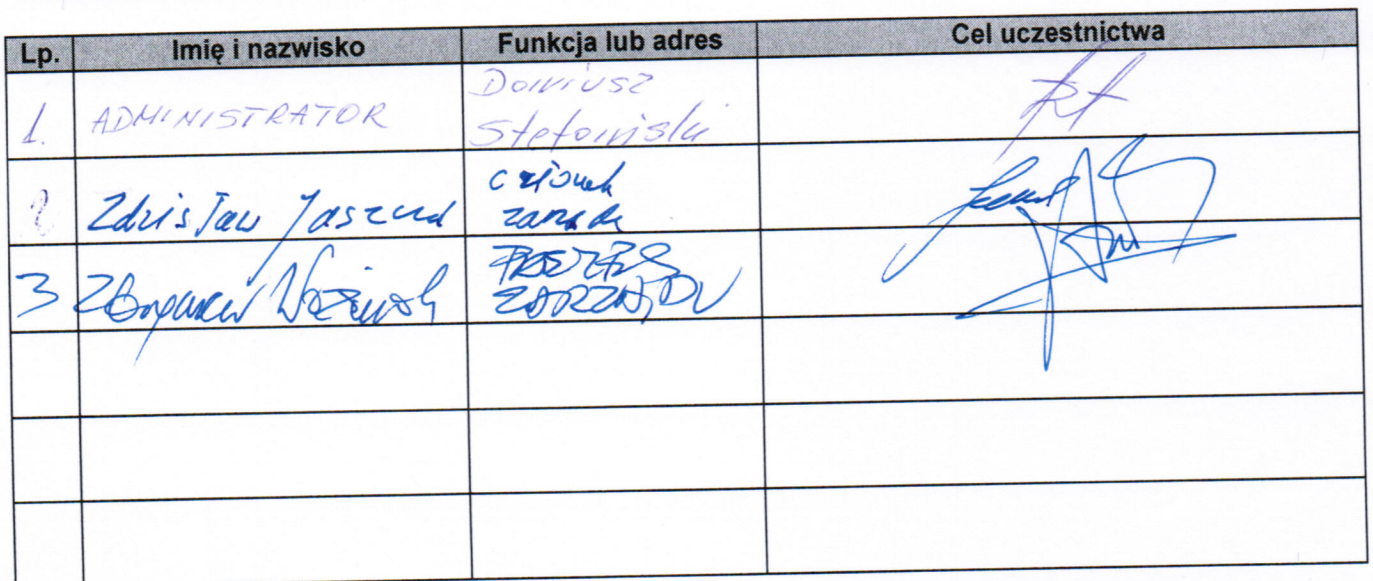 Lp. Imię i nazwisko Funkcja lub adres Cel uczestnictwa
1. ADMINISTRATOR Dariusz
Stefański
2 Zdzisław członek
zarządu
3 Zbigniew PREZES
ZARZĄDU